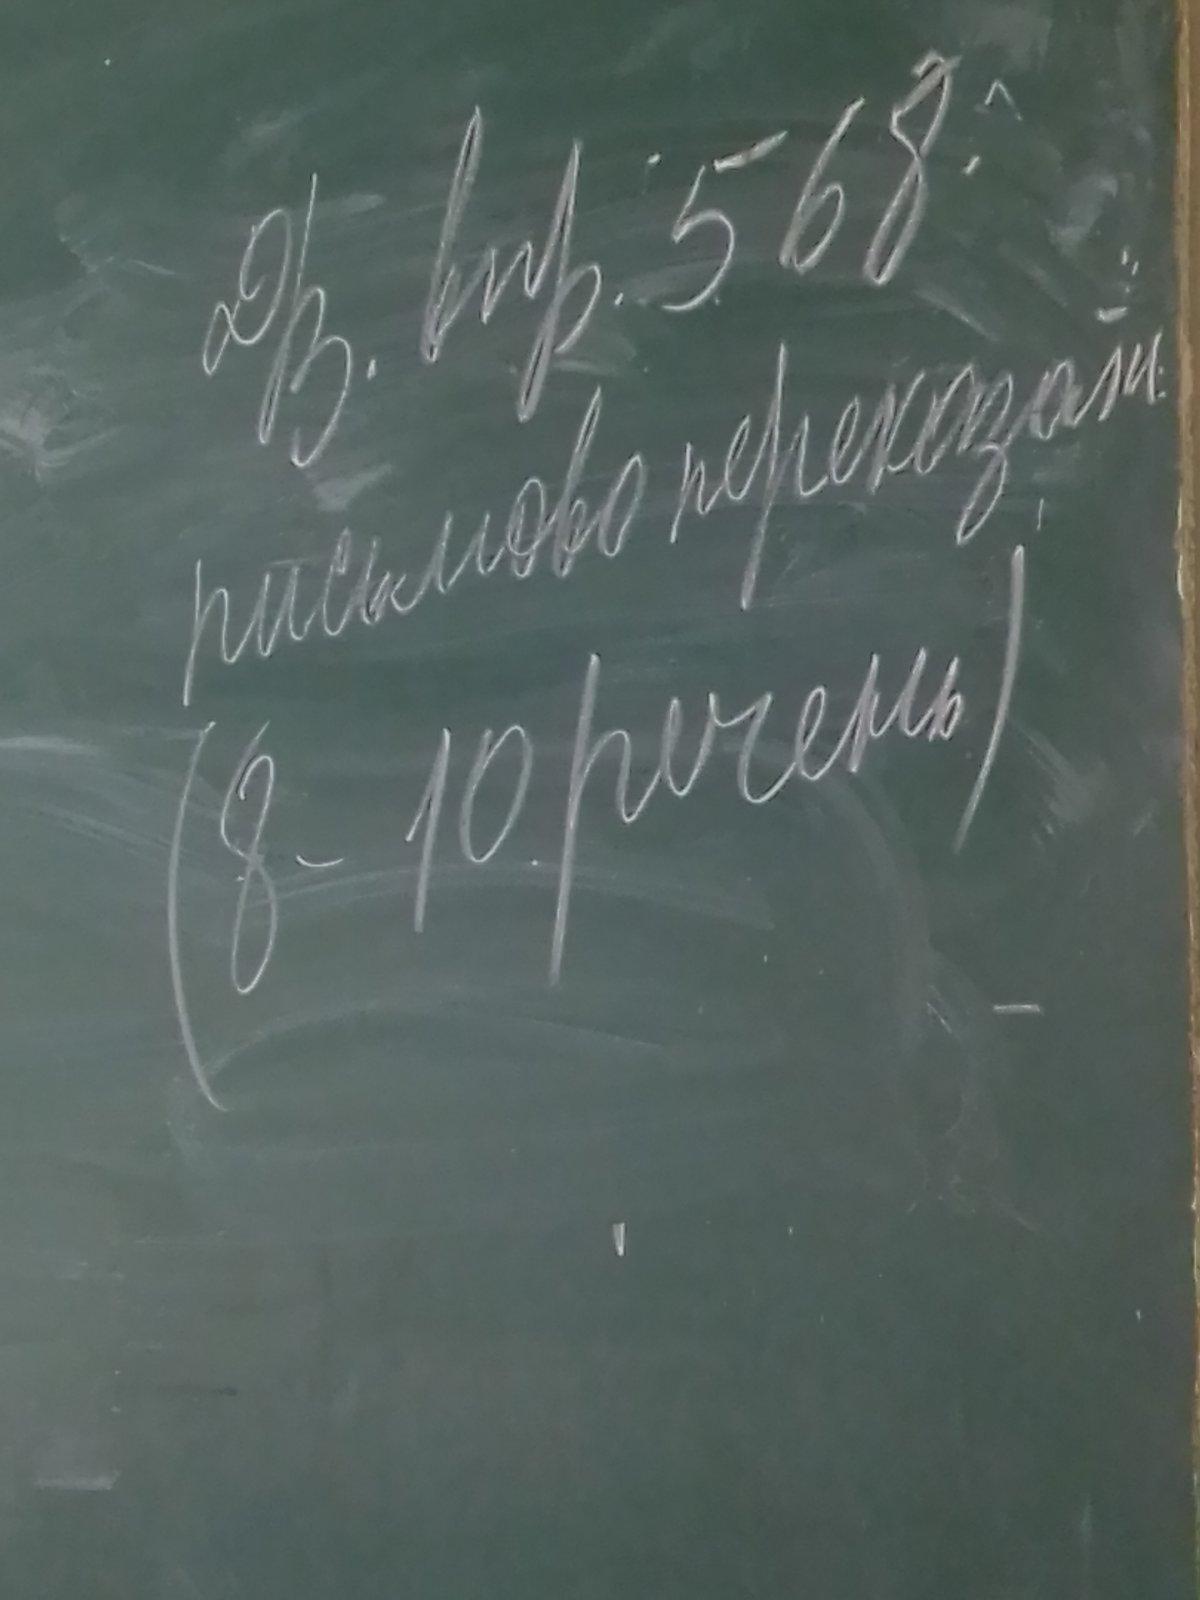 Дз. впр. 568:
письмово переказати
(8-10 речень)